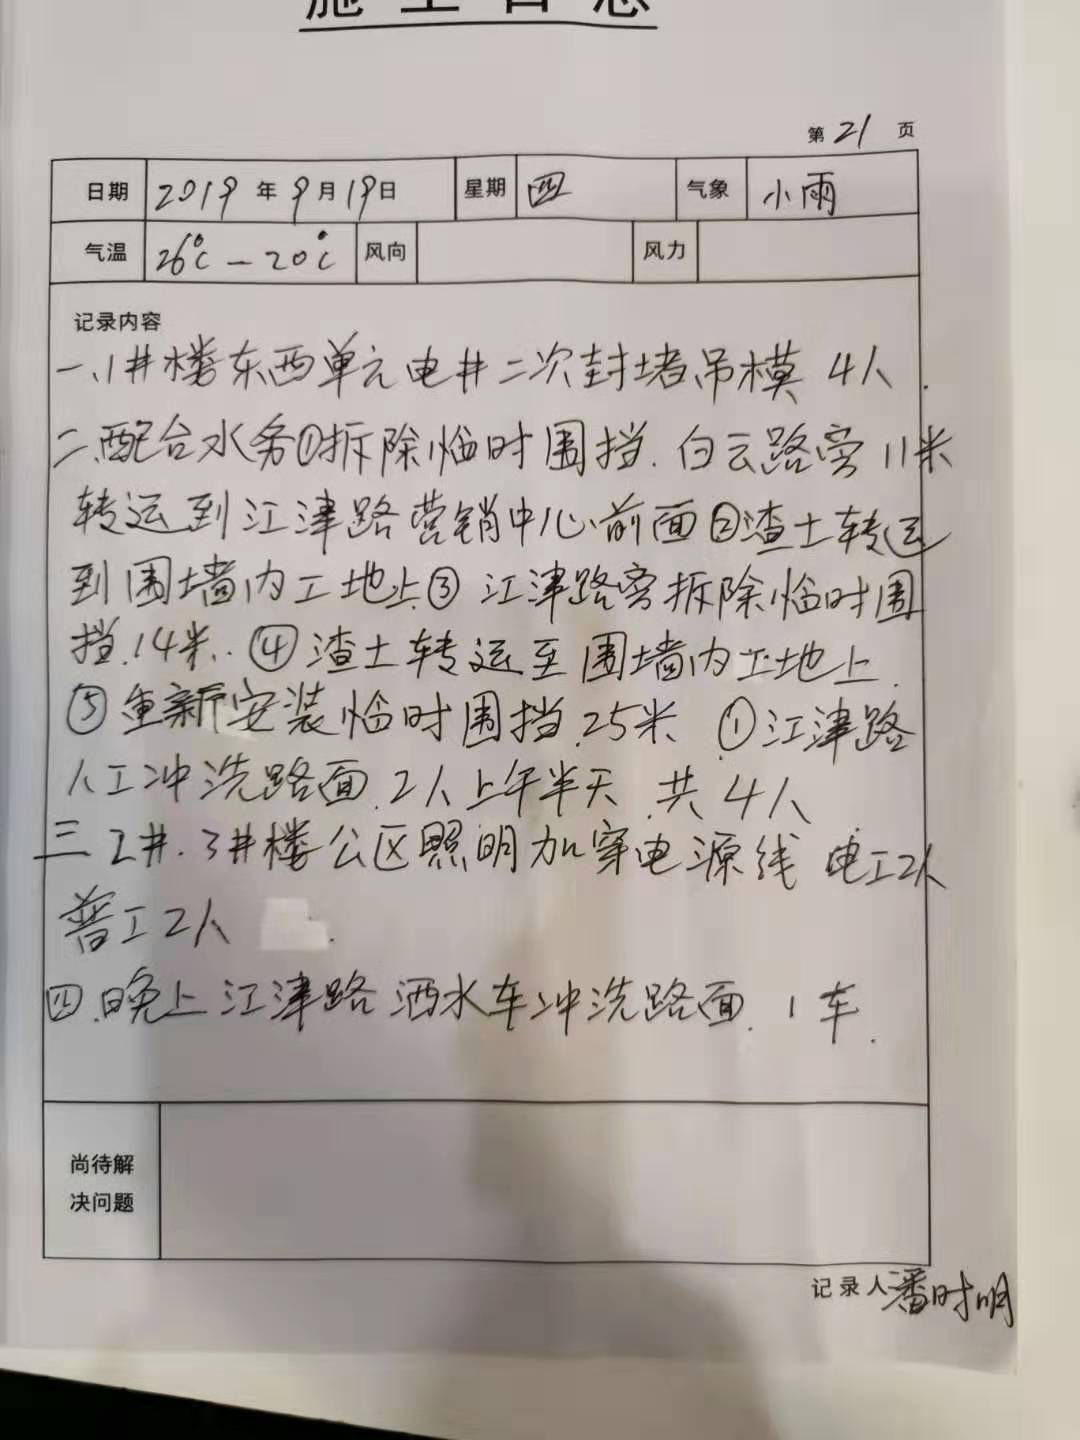 施工日志
第21页
日期 2019年9月19日 星期 四 气象 小雨
气温 26℃-20℃ 风向 风力
记录内容
一、1#楼东西单元电井二次封堵吊模 4人.
二、配合水务①拆除临时围挡.白云路旁11米
转运到江津路营销中心前面②渣土转运
到围墙内工地上③江津路旁拆除临时围
挡.14米..④渣土转运至围墙内工地上.
⑤重新安装临时围挡.25米 ①江津路
人工冲洗路面.2人上午半天 共4人
三 2#.3#楼公区照明加穿电源线 电工2人
普工2人.
四.晚上江津路洒水车冲洗路面.1车.
尚待解
决问题
记录人潘时明